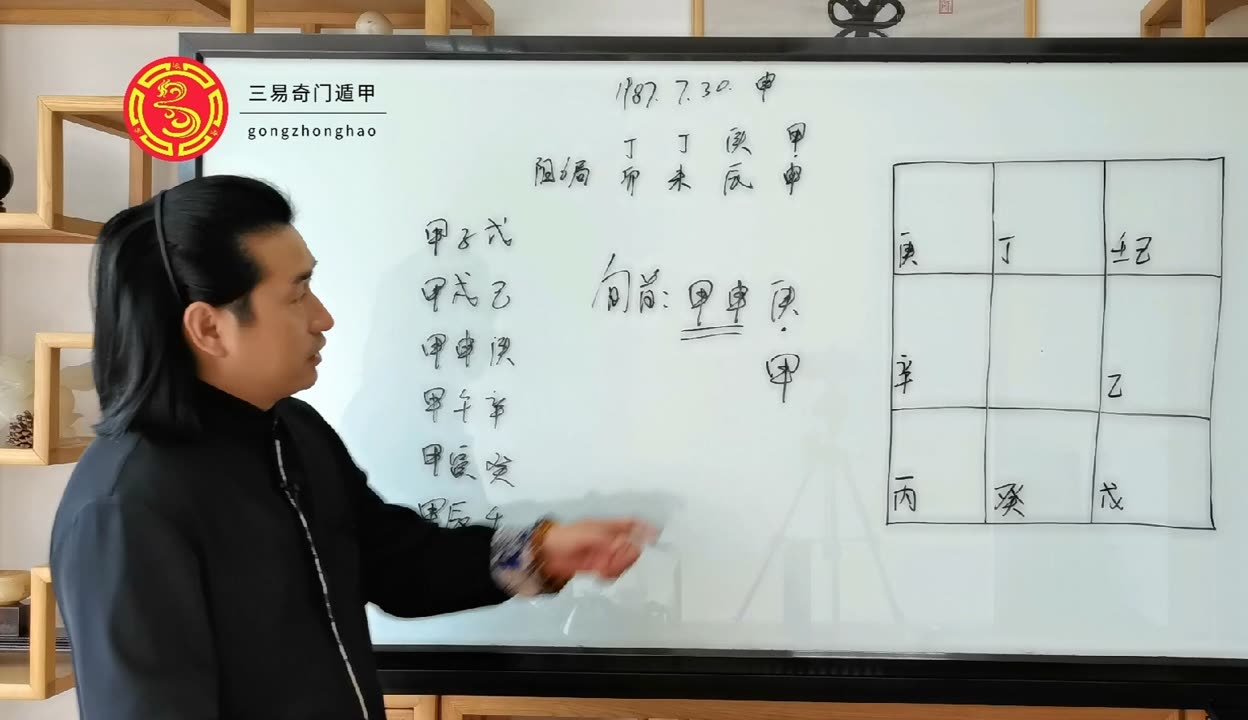 三易奇门遁甲
gongzhonghao
1987.7.30. 申
丁 丁 庚 甲
卯 未 辰 申
甲子戊
甲戌己
甲申庚
甲午辛
甲寅癸
甲辰
旬首：甲申庚
甲
庚 丁 壬己
辛 乙
丙 癸 戊